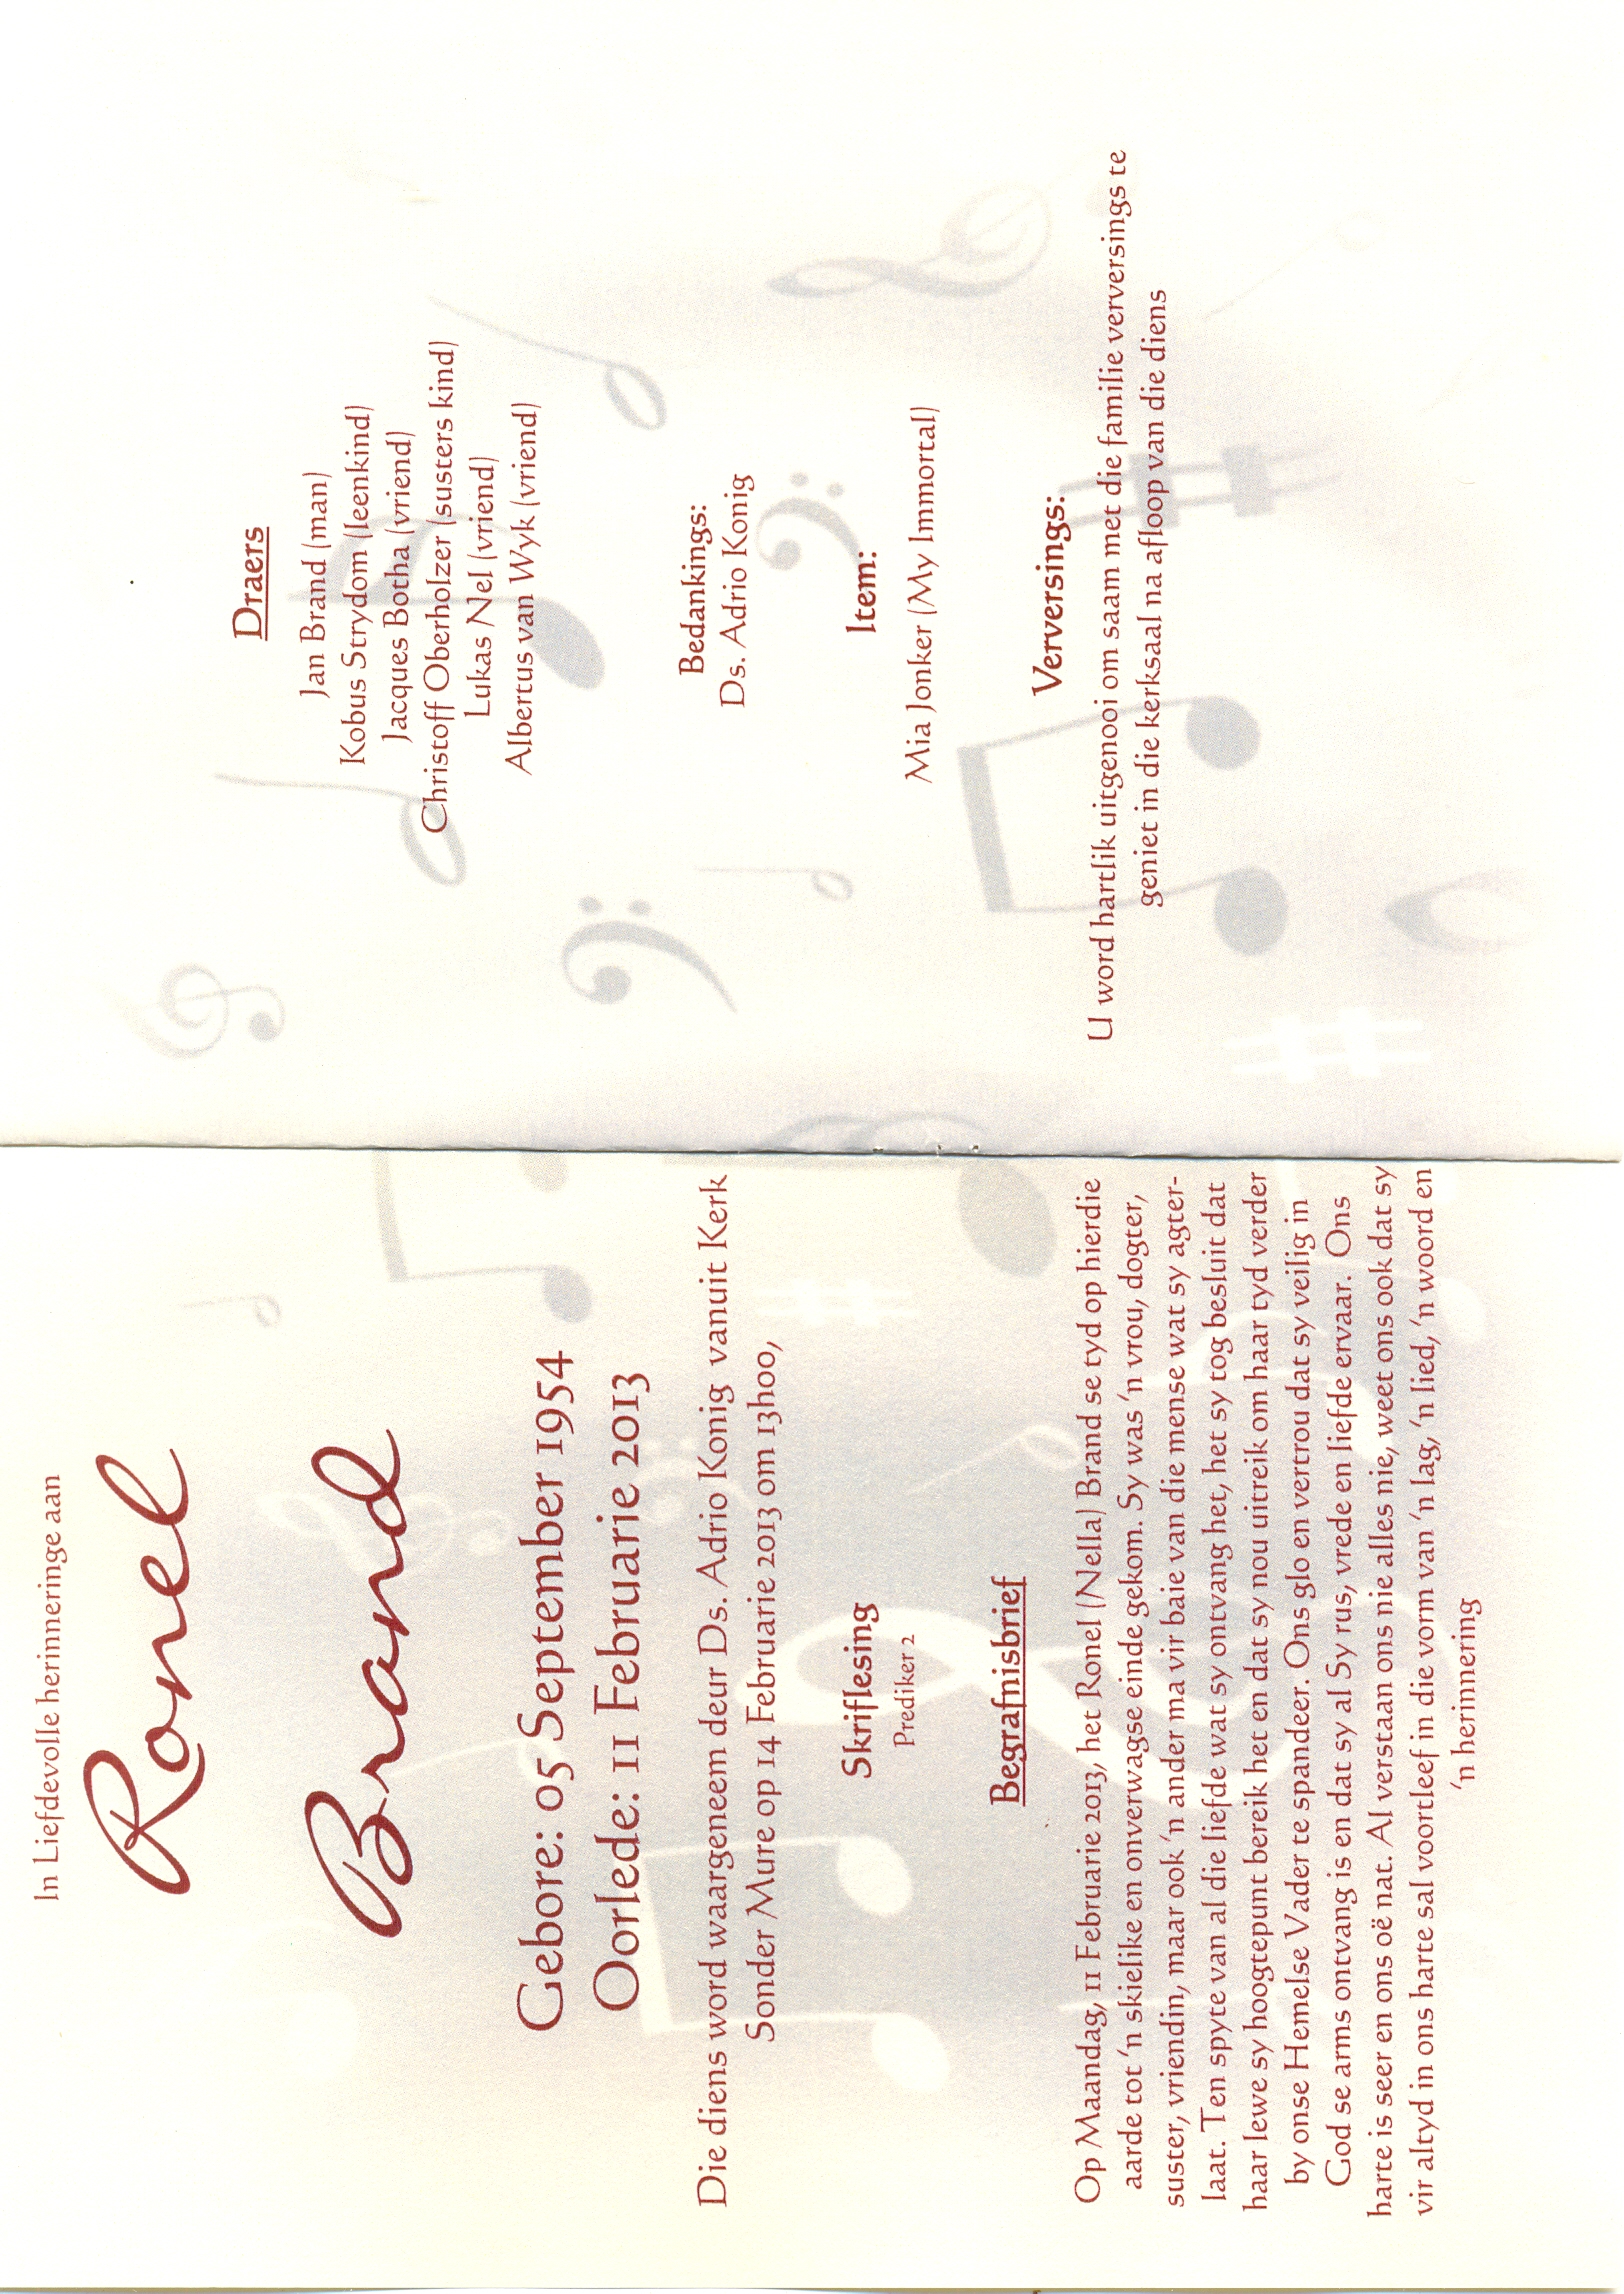 In Liefdevolle herinneringe aan
Ronel
Brand
Gebore: 05 September 1954
Oorlede: 11 Februarie 2013
Die diens word waargeneem deur Ds. Adrio Konig vanuit Kerk
Sonder Mure op 14 Februarie 2013 om 13h00,
Skriflesing
Prediker 2
Begrafnisbrief
Op Maandag, 11 Februarie 2013, het Ronel (Nella) Brand se tyd op hierdie
aarde tot ‘n skielike en onverwagse einde gekom. Sy was ‘n vrou, dogter,
suster, vriendin, maar ook ‘n ander ma vir baie van die mense wat sy agter-
laat. Ten spyte van al die liefde wat sy ontvang het, het sy tog besluit dat
haar lewe sy hoogtepunt bereik het en dat sy nou uitreik om haar tyd verder
by onse Hemelse Vader te spandeer. Ons glo en vertrou dat sy veilig in
God se arms ontvang is en dat sy al Sy rus, vrede en liefde ervaar. Ons
harte is seer en ons oë nat. Al verstaan ons nie alles nie, weet ons ook dat sy
vir altyd in ons harte sal voortleef in die vorm van ‘n lag, ‘n lied, ‘n woord en
‘n herinnering
Draers
Jan Brand (man)
Kobus Strydom (leenkind)
Jacques Botha (vriend)
Christoff Oberholzer (susters kind)
Lukas Nel (vriend)
Albertus van Wyk (vriend)
Bedankings:
Ds. Adrio Konig
Item:
Mia Jonker (My Immortal)
Verversings:
U word hartlik uitgenooi om saam met die familie verversings te
geniet in die kerksaal na afloop van die diens